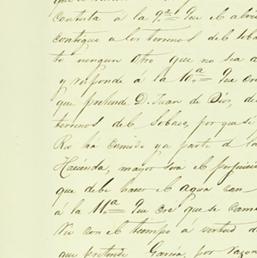 Contesta á la 9.ª Que el abri
contigua a los terrenos del Soba
to ningun otro que no sea a
y responde á la 10.ª Que cre
que pretende D. Juan de Dios, de
terrenos del Sobaco, por que se
Rio há comido ya parte de la
Hacienda, mayor será el perjuicio
que debe hacer el agua con
á la 11.ª Que cré que se cam
Rio con el tiempo a virtud d
que pretende Garcia, por razon